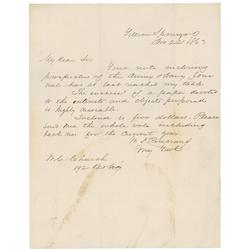 Yellow Springs O
Nov 22d 1863
My dear Sir
Your note inclosing
prospectus of the Army & Navy Journal
has at last reached my hand
The success of a paper devoted
to the interests and objects proposed
is highly desirable.
Inclosed is five dollars. Please
send me the whole vols including
back nos for the Current year
W. S. Rosecrans
Maj Genl
W. C. Church
192 Bdway